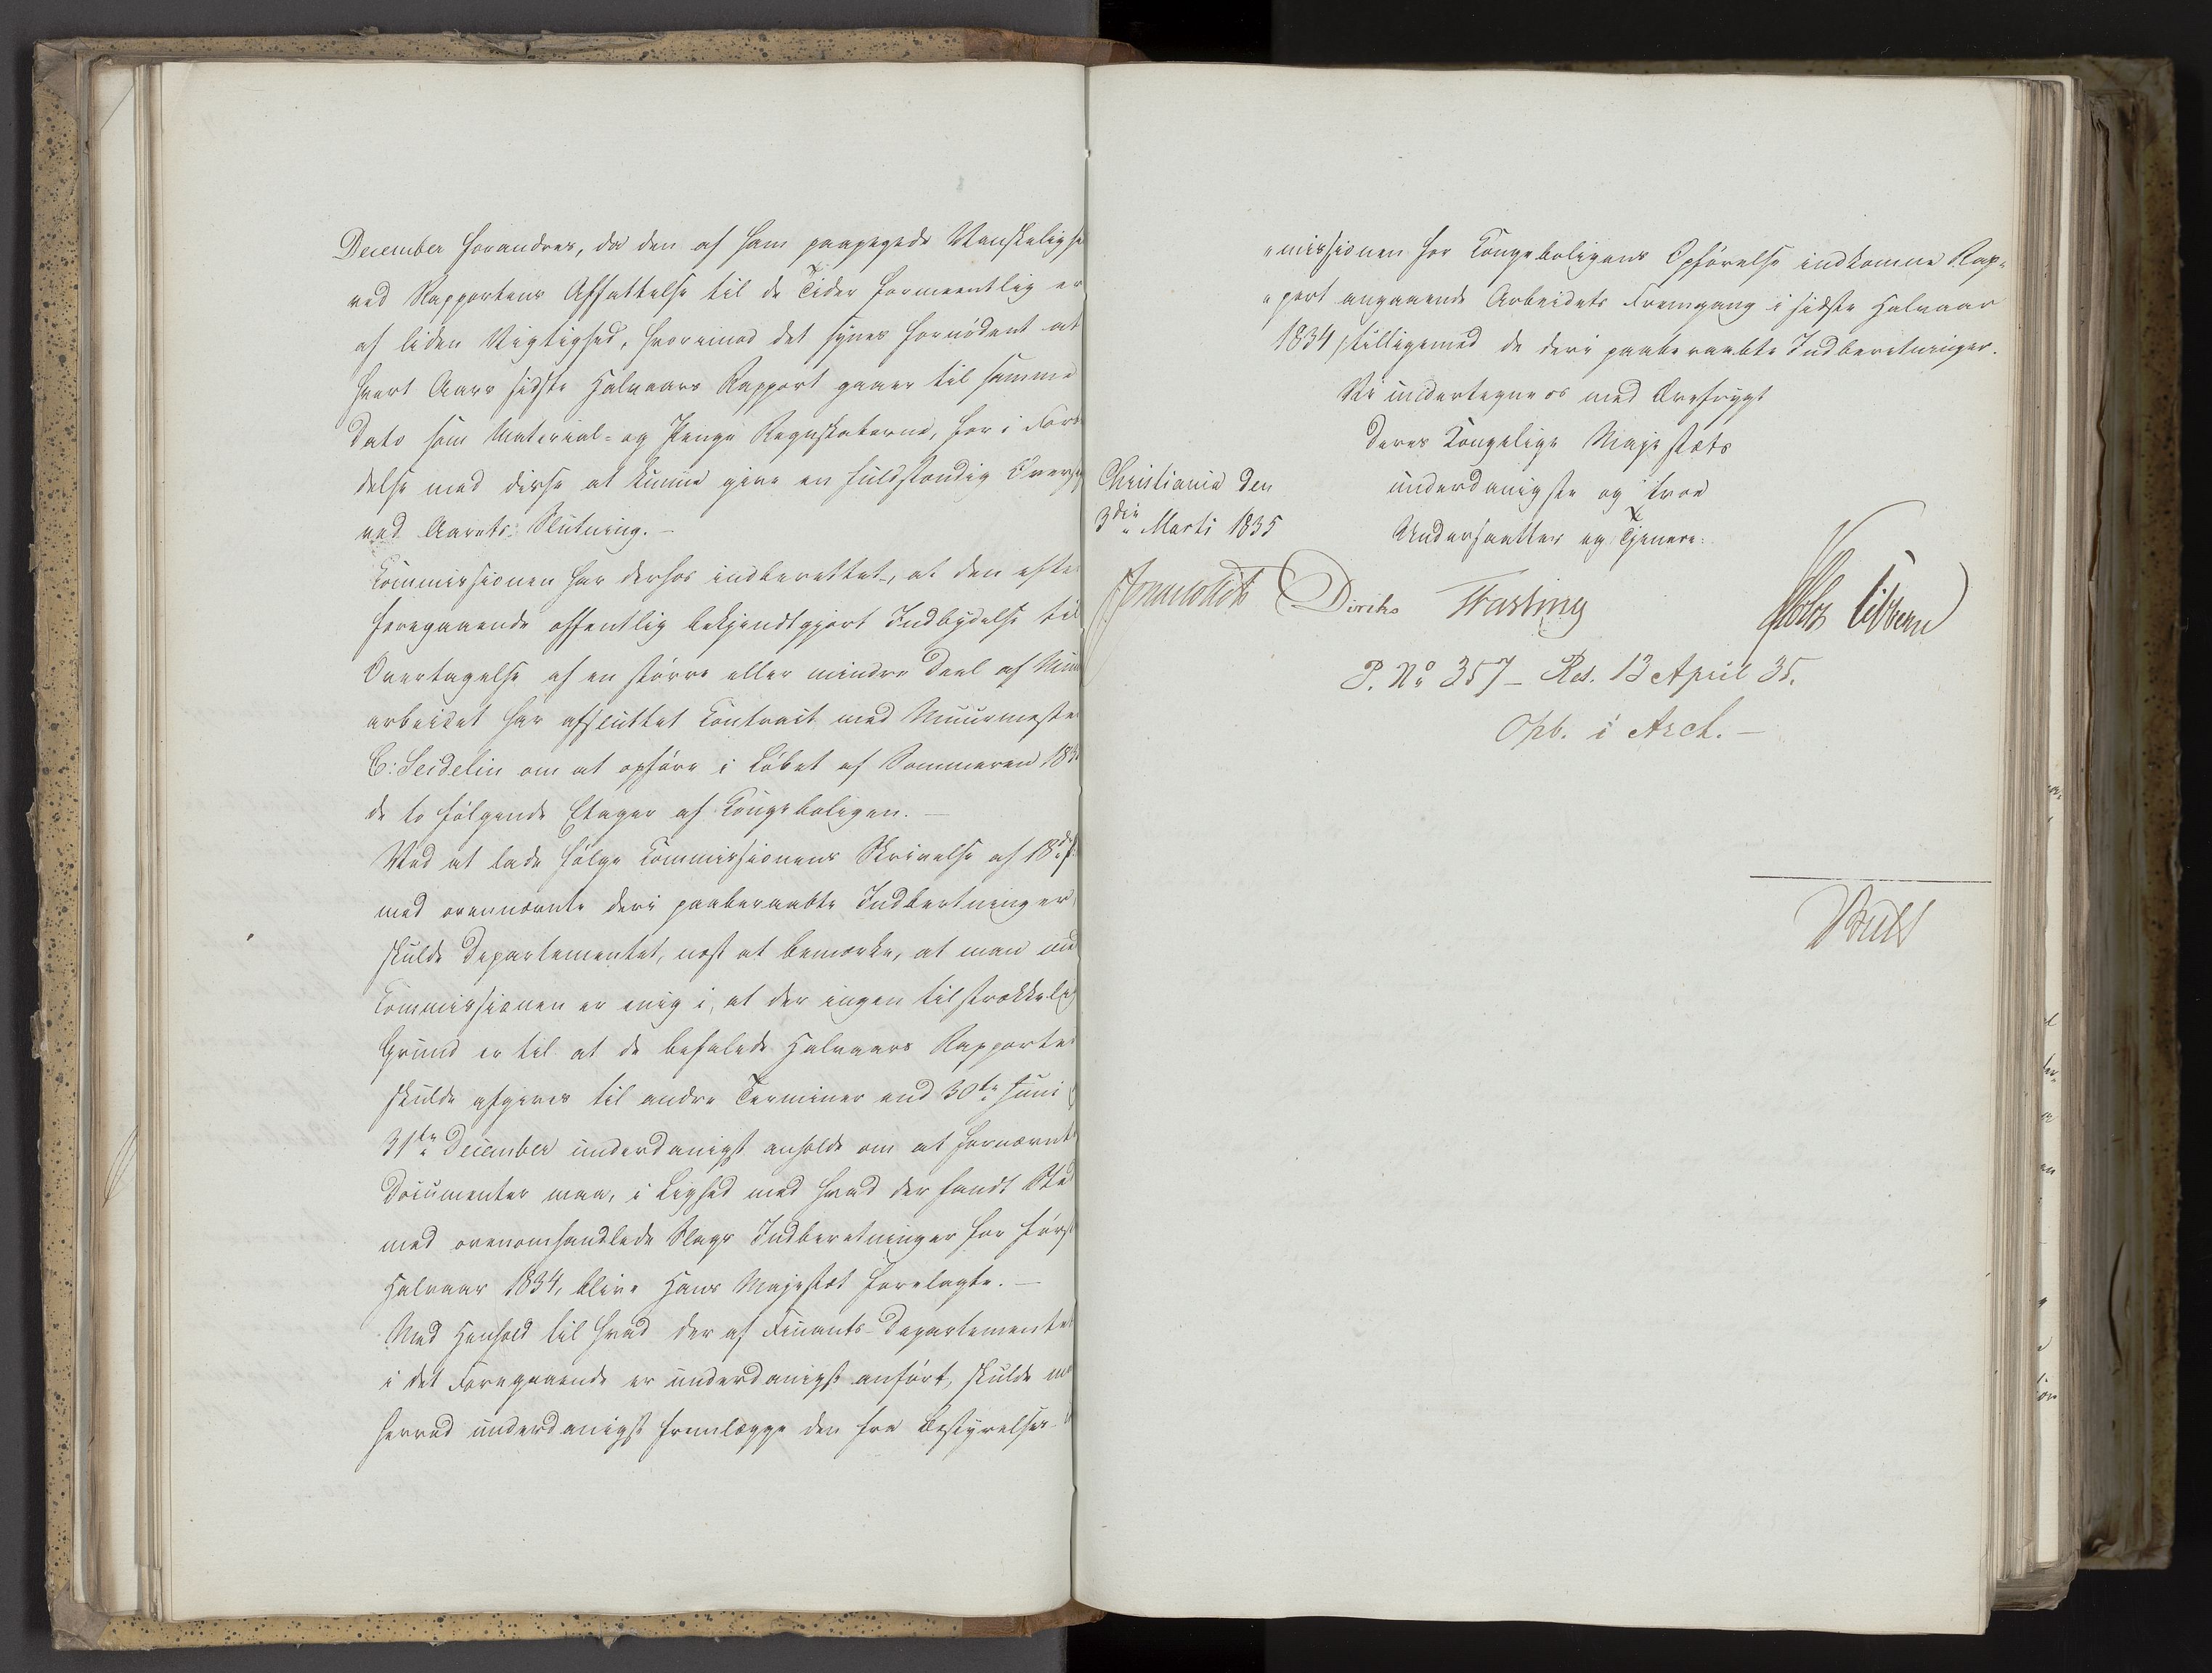 December forandres, da den af ham paapegede Vanskelighe
ved Rapportens Affattelse til de Tider formeentlig er
af liden Vigtighed, hvorimod det synes fornödent at
hvert Aars sidste Halvaars Rapport gaaer til samme
Dato som Material- og Penge Regnskaberne, for i For
delse med disse at kunne give en fuldstændig Oversig
ved Aarets Slutning. -
Commissionen har derhos indberettet, at den efter
foregaaende offentlig bekjendtgjort Indbydelse til
Overtagelse af en större eller mindre Deel af Muu
arbeidet har afsluttet Contract med Muurmester
C: Seidelin om at opföre i Löbet af Sommeren 183
de to fölgende Etager af Kongeboligen. -
Ved at lade fölge Commissionens Skrivelse af 18de f:
med ovennævnte deri paaberaabte Indbertninger,
skulde Departementet, næst at bemærke, at man med
Commissionen er enig i, at der ingen tilstrækkelig
Grund er til at de befalede Halvaars Rapporter
skulde afgives til andre Terminer end 30te Juni
31te December underdanigst anholde om at fornævnte
Documenter maa, i Lighed med hvad der fandt Sted
med ovenomhandlede Slags Indberetninger for först
Halvaar 1834, blive Hans Majestæt forelagte. -
Med Henhold til hvad der af Finants-Departementet
i det Foregaaende er underdanigst anfört, skulde m
herved underdanigst fremlægge den fra Bestyrelses-
"missionen for Kongeboligens Opförelse indkomne Rap-
"port angaaende Arbeidets Fremgang i sidste Halvaar
1834, tilligemed de deri paaberaabte Indberetninger.
Vi undertegne os med Ærefrygt
Deres Kongelige Majestæts
underdanigste og troe
Undersaatter og Tjenere.
Christiania den
3die Marts 1835
Diriks Fasting
P. No 357 - Res. 13 April 35.
Opb. i Arch. -
Bull